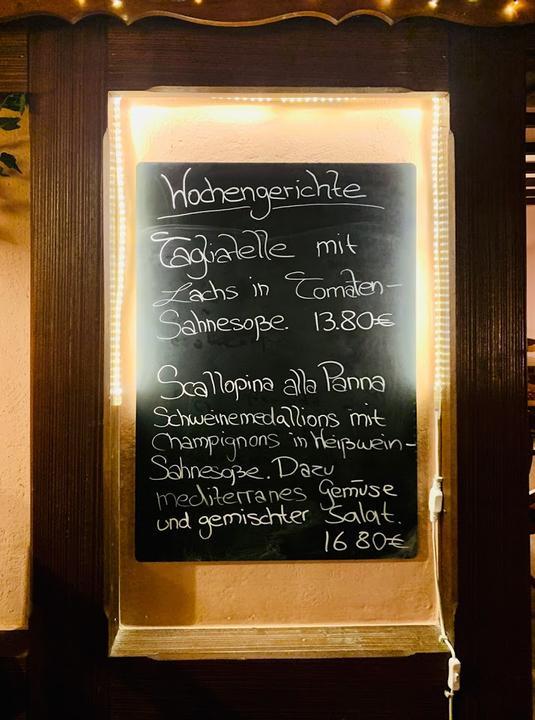 Wochengerichte
Tagliatelle mit
Lachs in Tomaten-
Sahnesoße. 13.80€
Scallopina alla Panna
Schweinemedallions mit
Champignons in Weißwein-
Sahnesoße. Dazu
mediterranes Gemüse
und gemischter Salat.
16 80€